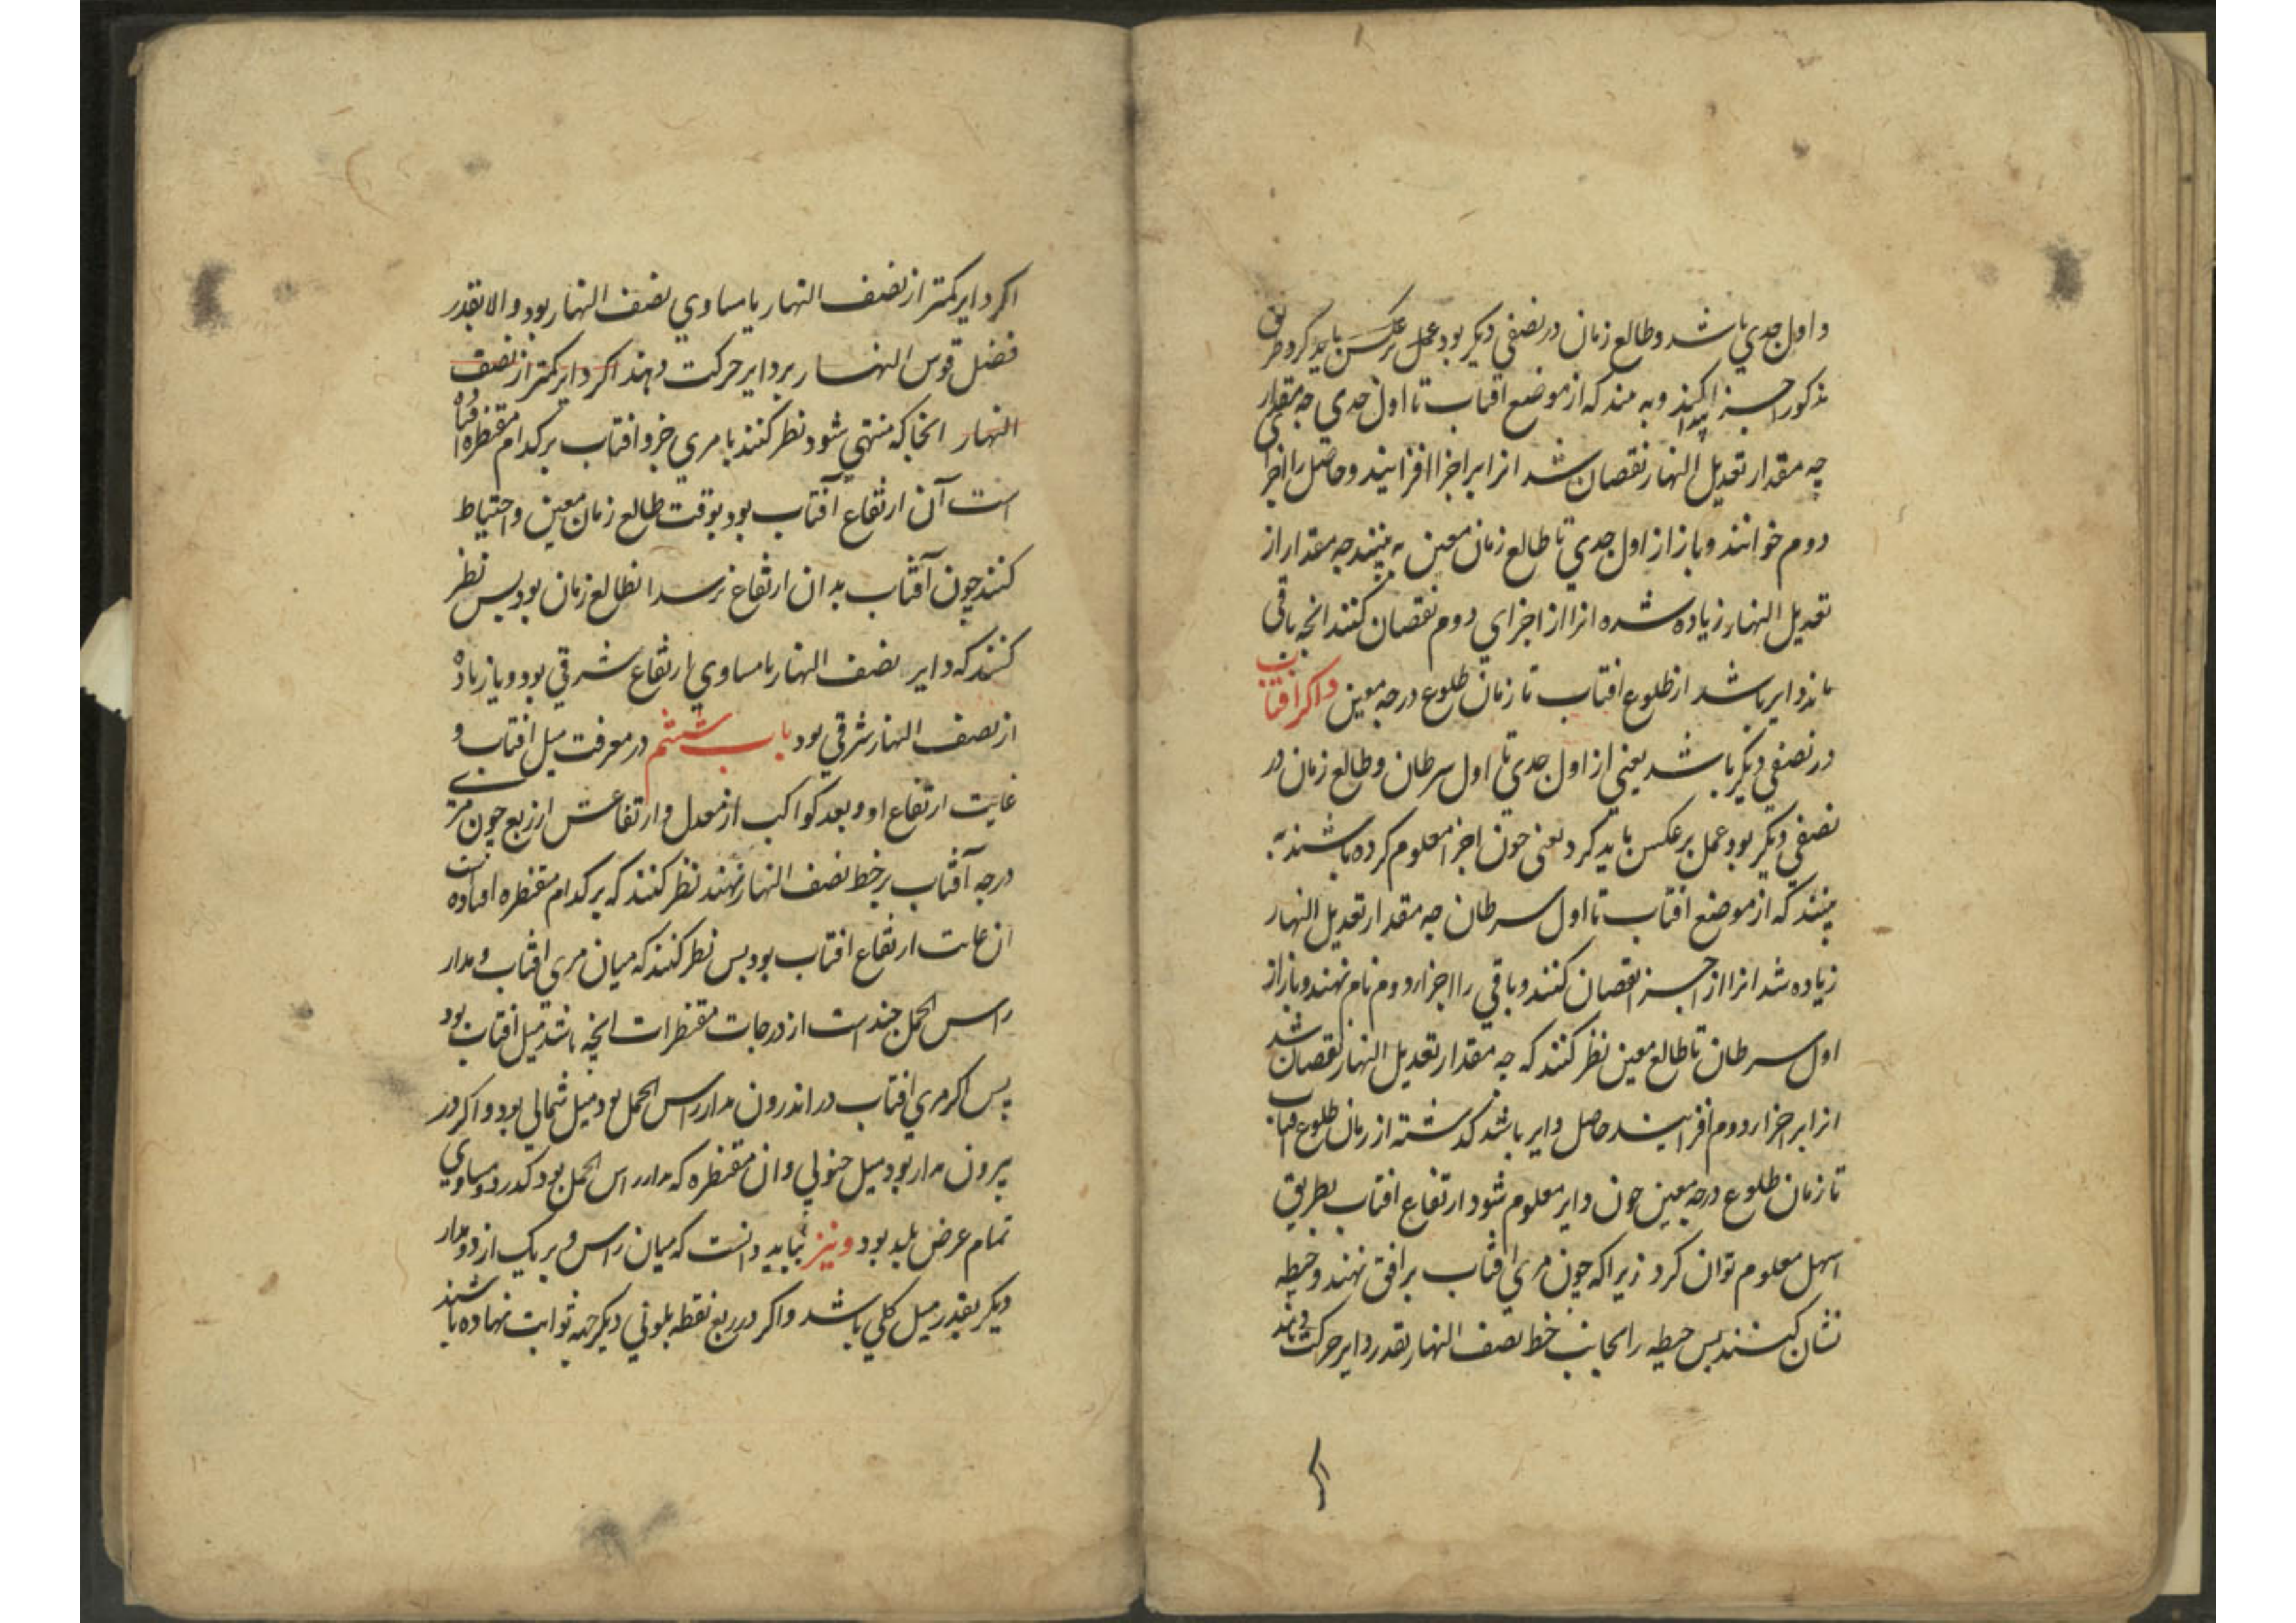 و اول جدي باشد و طالع زمان در نصفي ديكر بود عمل برعكس بايد كرد و طريق
مذكور اجزا پيدا كنند و به بينند كه از موضع افتاب تا اول جدي چه مقدار
چه مقدار تعديل النهار نقصان شد انرا بر اجزا افزايند و حاصل را اجزا
دوم خوانند و باز از اول جدي تا طالع زمان معين به بينند چه مقدار از
تعديل النهار زياده شده انرا از اجزاي دوم نقصان كنند انچه باقي
ماند داير باشد از طلوع افتاب تا زمان طلوع درجه معين و اكر افتاب
در نصفي ديكر باشد يعني از اول جدي تا اول سرطان و طالع زمان در
نصفي ديكر بود عمل برعكس بايد كرد يعني چون اجزا معلوم كرده باشند به
بينند كه از موضع افتاب تا اول سرطان چه مقدار تعديل النهار
زياده شد انرا از اجزا نقصان كنند و باقي را اجزاء دوم نام نهند و باز از
اول سرطان تا طالع معين نظر كنند كه چه مقدار تعديل النهار نقصان شد
انرا بر اجزاء دوم افزايند حاصل داير باشد كذشته از زمان طلوع افتاب
تا زمان طلوع درجه معين چون داير معلوم شود ارتفاع افتاب بطريق
اسهل معلوم توان كرد زيرا كه چون مري افتاب بر افق نهند و حيطه
نشان كنند پس حيطه را بجانب خط نصف النهار بقدر داير حركت دهند
اكر داير كمتر از نصف النهار يا مساوي نصف النهار بود و الا بقدر
فضل قوس النهار بر داير حركت دهند اكر داير كمتر از نصف
النهار انجا كه منتهي شود نظر كنند تا مري جزو افتاب بر كدام مقنطره افتاده
است آن ارتفاع آفتاب بود بوقت طالع زمان معين و احتياط
كنند چون آفتاب بدان ارتفاع رسد ان طالع زمان بود پس نظر
كنند كه داير نصف النهار يا مساوي ارتفاع شرقي بود و يا زياده
از نصف النهار شرقي بود باب ششم در معرفت ميل افتاب و
غايت ارتفاع او و بعد كواكب از معدل و ارتفاعش از ربع چون مري
درجه آفتاب بر خط نصف النهار نهند نظر كنند كه بر كدام مقنطره افتاده است
ان غايت ارتفاع افتاب بود پس نظر كنند كه ميان مري افتاب و مدار
راس الحمل چند است از درجات مقنطرات انچه باشد ميل افتاب بود
پس اكر مري افتاب در اندرون مدار راس الحمل بود ميل شمالي بود و اكر در
بيرون مدار بود ميل جنوبي و ان مقنطره كه مدار راس الحمل بود كذرد مساوي
تمام عرض بلد بود و نيز ببايد دانست كه ميان راس و بر يك از دو مدار
ديكر بقدر ميل كلي باشد و اكر در ربع نقطه ديكر جهة ثوابت نهاده باشند